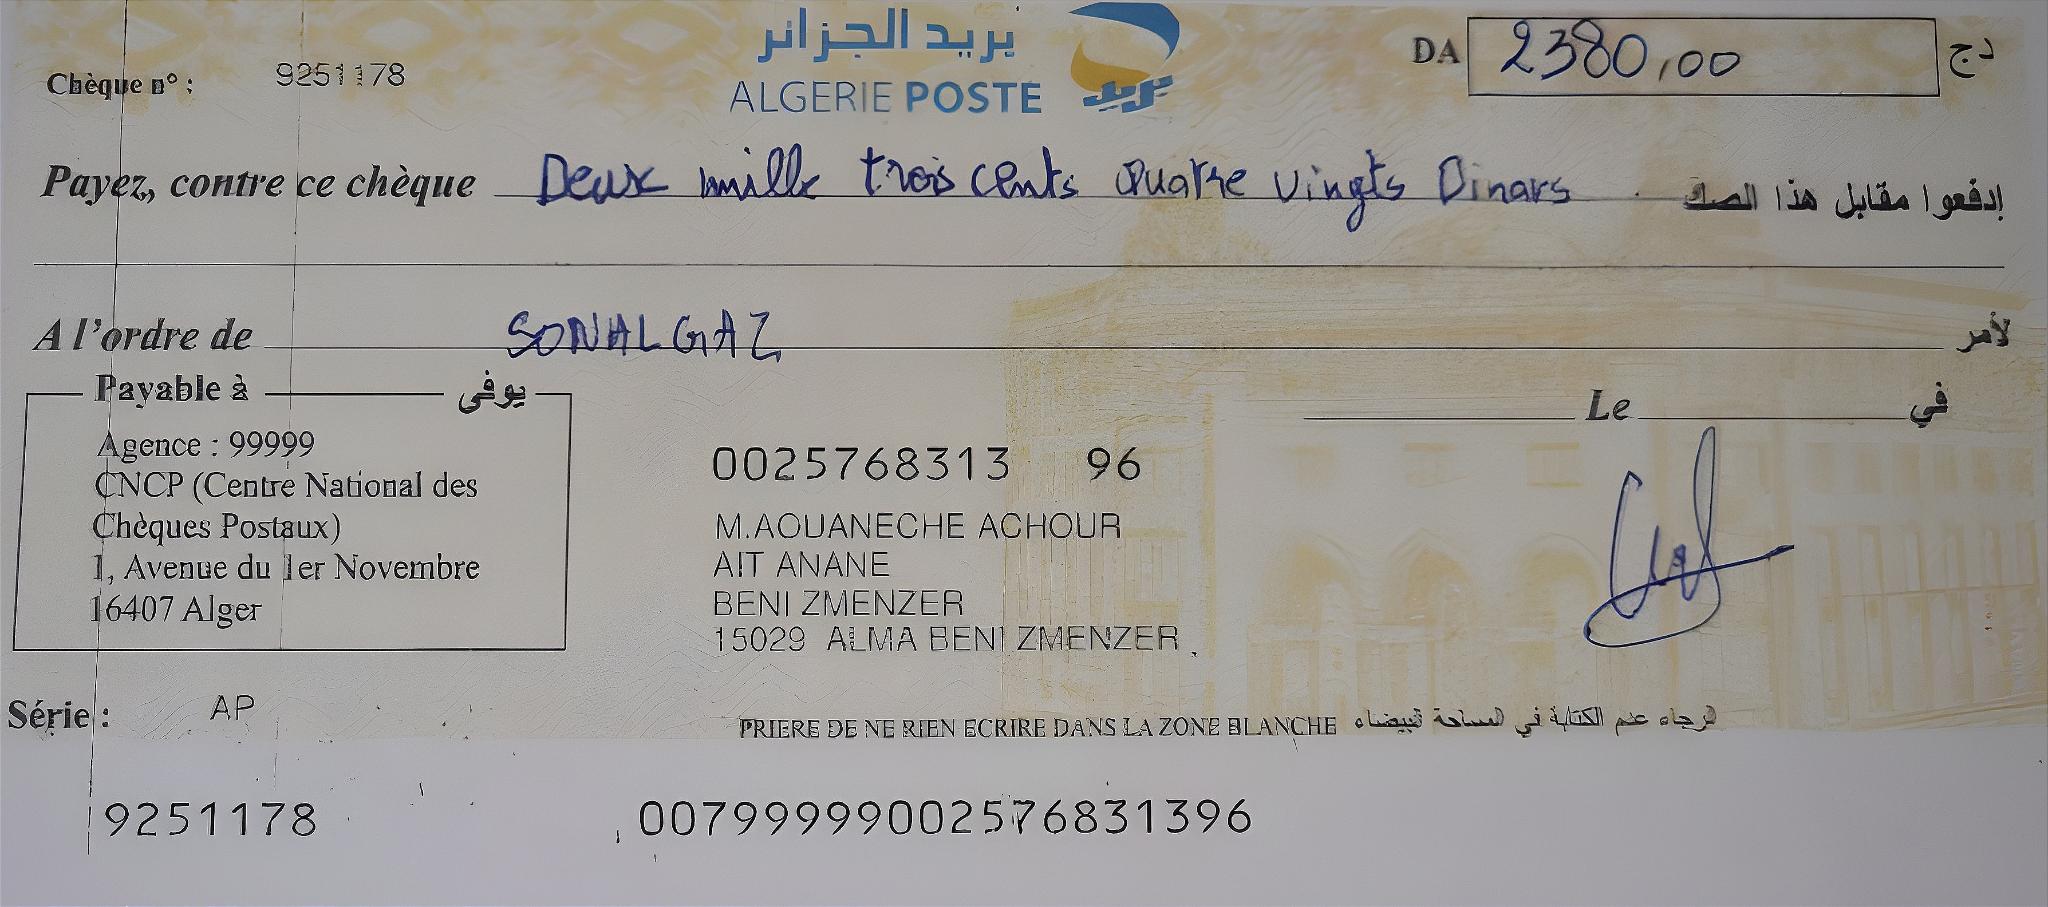 بريد الجزائر
ALGERIE POSTE
بريد
Chèque n° : 9251178
DA 2380,00 دج
Payez, contre ce chèque Deux mille trois cents Quatre vingts Dinars إدفعوا مقابل هذا الصك
A l'ordre de SONALGAZ لأمر
Payable à يوفى
Agence : 99999
CNCP (Centre National des
Chèques Postaux)
1, Avenue du 1er Novembre
16407 Alger
Le في
0025768313 96
M.AOUANECHE ACHOUR
AIT ANANE
BENI ZMENZER
15029 ALMA BENI ZMENZER
Série : AP
PRIERE DE NE RIEN ECRIRE DANS LA ZONE BLANCHE الرجاء عدم الكتابة في المساحة البيضاء
9251178
00799999002576831396